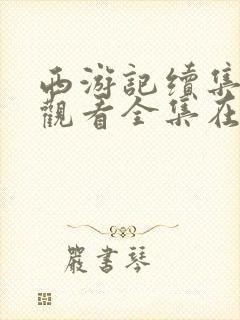 西游記續集
觀看全集在
嚴書琴